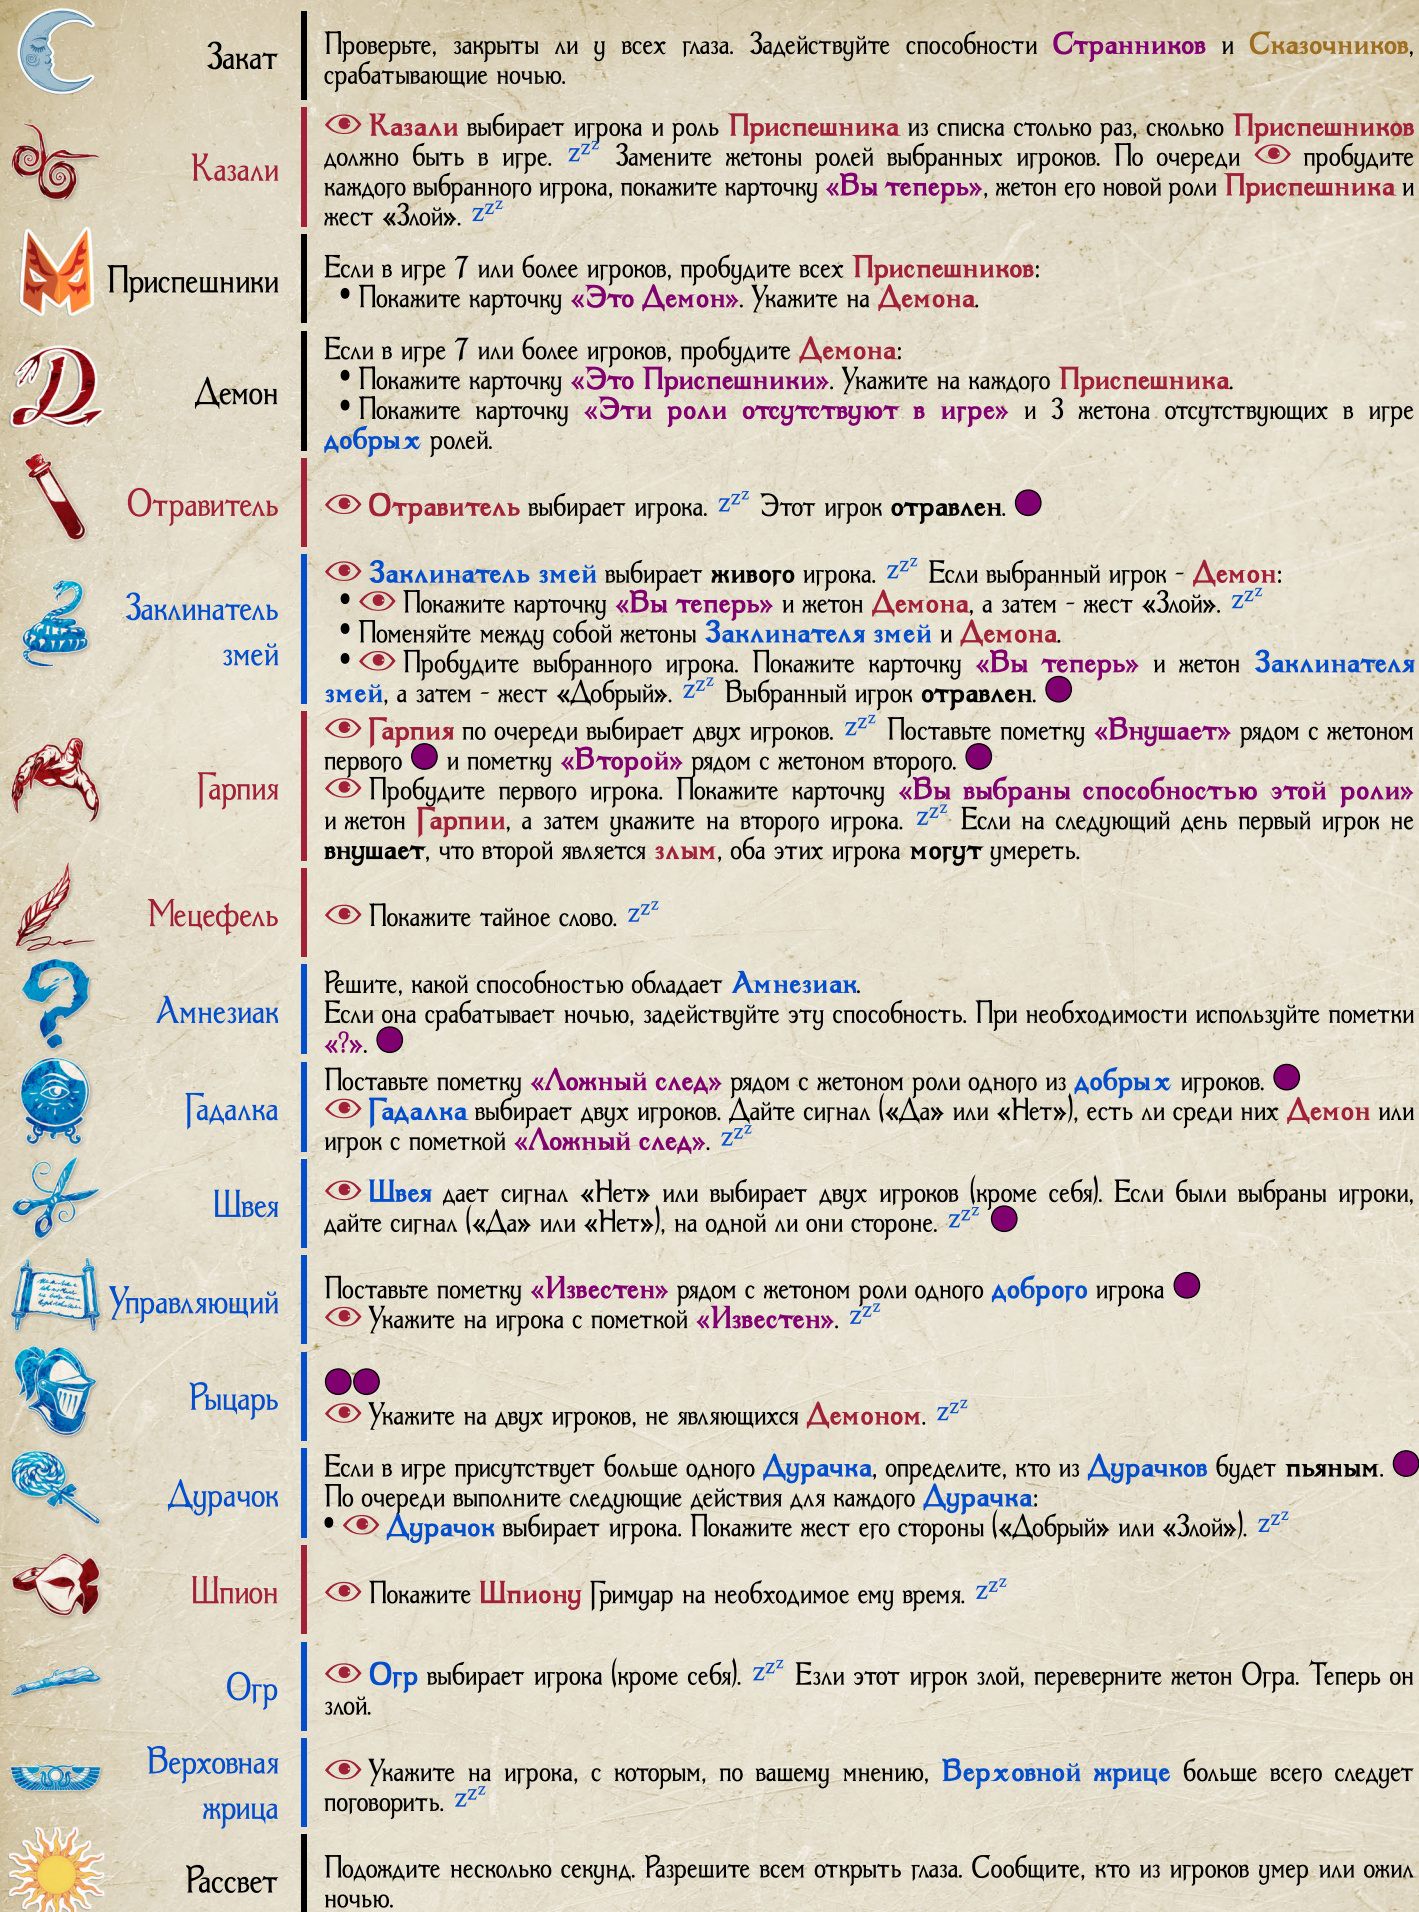 Закат
Проверьте, закрыты ли у всех глаза. Задействуйте способности Странников и Сказочников,
срабатывающие ночью.
Казали
Казали выбирает игрока и роль Приспешника из списка столько раз, сколько Приспешников
должно быть в игре. zzz Замените жетоны ролей выбранных игроков. По очереди пробудите
каждого выбранного игрока, покажите карточку «Вы теперь», жетон его новой роли Приспешника и
жест «Злой». zzz
Приспешники
Если в игре 7 или более игроков, пробудите всех Приспешников:
• Покажите карточку «Это Демон». Укажите на Демона.
Демон
Если в игре 7 или более игроков, пробудите Демона:
• Покажите карточку «Это Приспешники». Укажите на каждого Приспешника.
• Покажите карточку «Эти роли отсутствуют в игре» и 3 жетона отсутствующих в игре
добрых ролей.
Отравитель
Отравитель выбирает игрока. zzz Этот игрок отравлен.
Заклинатель
змей
Заклинатель змей выбирает живого игрока. zzz Если выбранный игрок - Демон:
• Покажите карточку «Вы теперь» и жетон Демона, а затем - жест «Злой». zzz
• Поменяйте между собой жетоны Заклинателя змей и Демона.
• Пробудите выбранного игрока. Покажите карточку «Вы теперь» и жетон Заклинателя
змей, а затем - жест «Добрый». zzz Выбранный игрок отравлен.
Гарпия
Гарпия по очереди выбирает двух игроков. zzz Поставьте пометку «Внушает» рядом с жетоном
первого и пометку «Второй» рядом с жетоном второго.
Пробудите первого игрока. Покажите карточку «Вы выбраны способностью этой роли»
и жетон Гарпии, а затем укажите на второго игрока. zzz Если на следующий день первый игрок не
внушает, что второй является злым, оба этих игрока могут умереть.
Мецефель
Покажите тайное слово. zzz
Амнезиак
Решите, какой способностью обладает Амнезиак.
Если она срабатывает ночью, задействуйте эту способность. При необходимости используйте пометки
«?».
Гадалка
Поставьте пометку «Ложный след» рядом с жетоном роли одного из добрых игроков.
Гадалка выбирает двух игроков. Дайте сигнал («Да» или «Нет»), есть ли среди них Демон или
игрок с пометкой «Ложный след». zzz
Швея
Швея дает сигнал «Нет» или выбирает двух игроков (кроме себя). Если были выбраны игроки,
дайте сигнал («Да» или «Нет»), на одной ли они стороне. zzz
Управляющий
Поставьте пометку «Известен» рядом с жетоном роли одного доброго игрока
Укажите на игрока с пометкой «Известен». zzz
Рыцарь
Укажите на двух игроков, не являющихся Демоном. zzz
Дурачок
Если в игре присутствует больше одного Дурачка, определите, кто из Дурачков будет пьяным.
По очереди выполните следующие действия для каждого Дурачка:
• Дурачок выбирает игрока. Покажите жест его стороны («Добрый» или «Злой»). zzz
Шпион
Покажите Шпиону Гримуар на необходимое ему время. zzz
Огр
Огр выбирает игрока (кроме себя). zzz Езли этот игрок злой, переверните жетон Огра. Теперь он
злой.
Верховная
жрица
Укажите на игрока, с которым, по вашему мнению, Верховной жрице больше всего следует
поговорить. zzz
Рассвет
Подождите несколько секунд. Разрешите всем открыть глаза. Сообщите, кто из игроков умер или ожил
ночью.